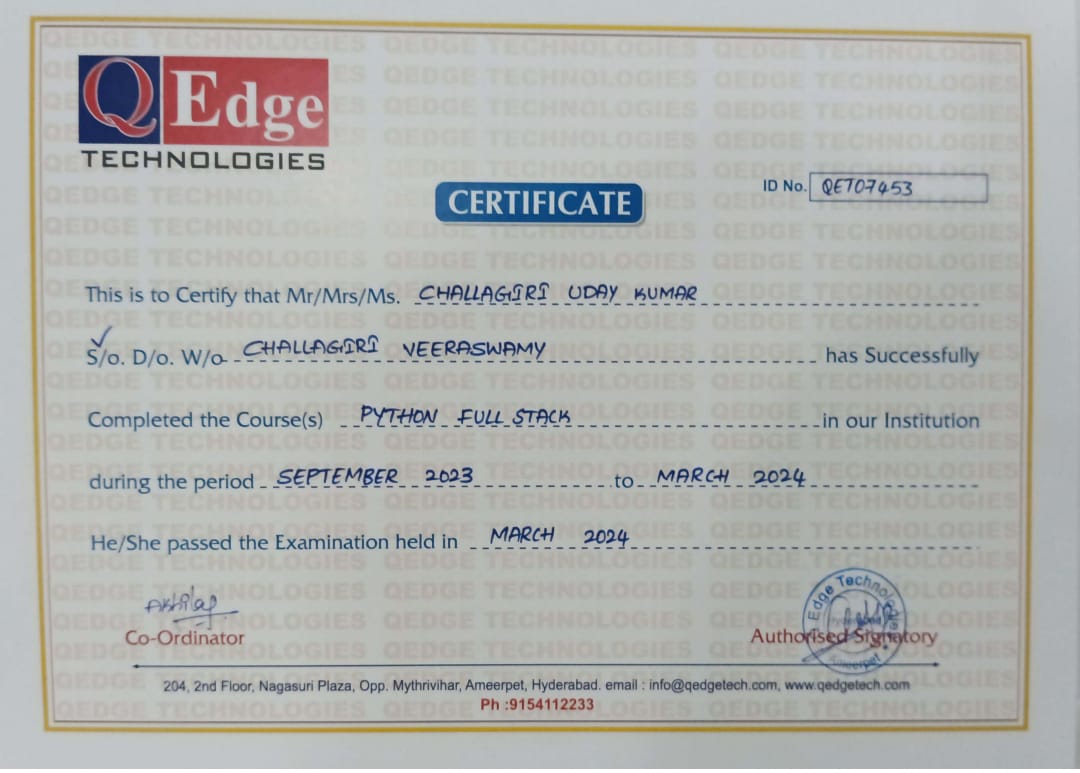 QEdge
TECHNOLOGIES
CERTIFICATE
ID No. QET07453
This is to Certify that Mr/Mrs/Ms. CHALLAGIRI UDAY KUMAR
S/o. D/o. W/o CHALLAGIRI VEERASWAMY has Successfully
Completed the Course(s) PYTHON FULL STACK in our Institution
during the period SEPTEMBER 2023 to MARCH 2024
He/She passed the Examination held in MARCH 2024
Co-Ordinator
Edge Technologies
Hyderabad
Ameerpet
Authorised Signatory
204, 2nd Floor, Nagasuri Plaza, Opp. Mythrivihar, Ameerpet, Hyderabad. email : info@qedgetech.com, www.qedgetech.com
Ph :9154112233